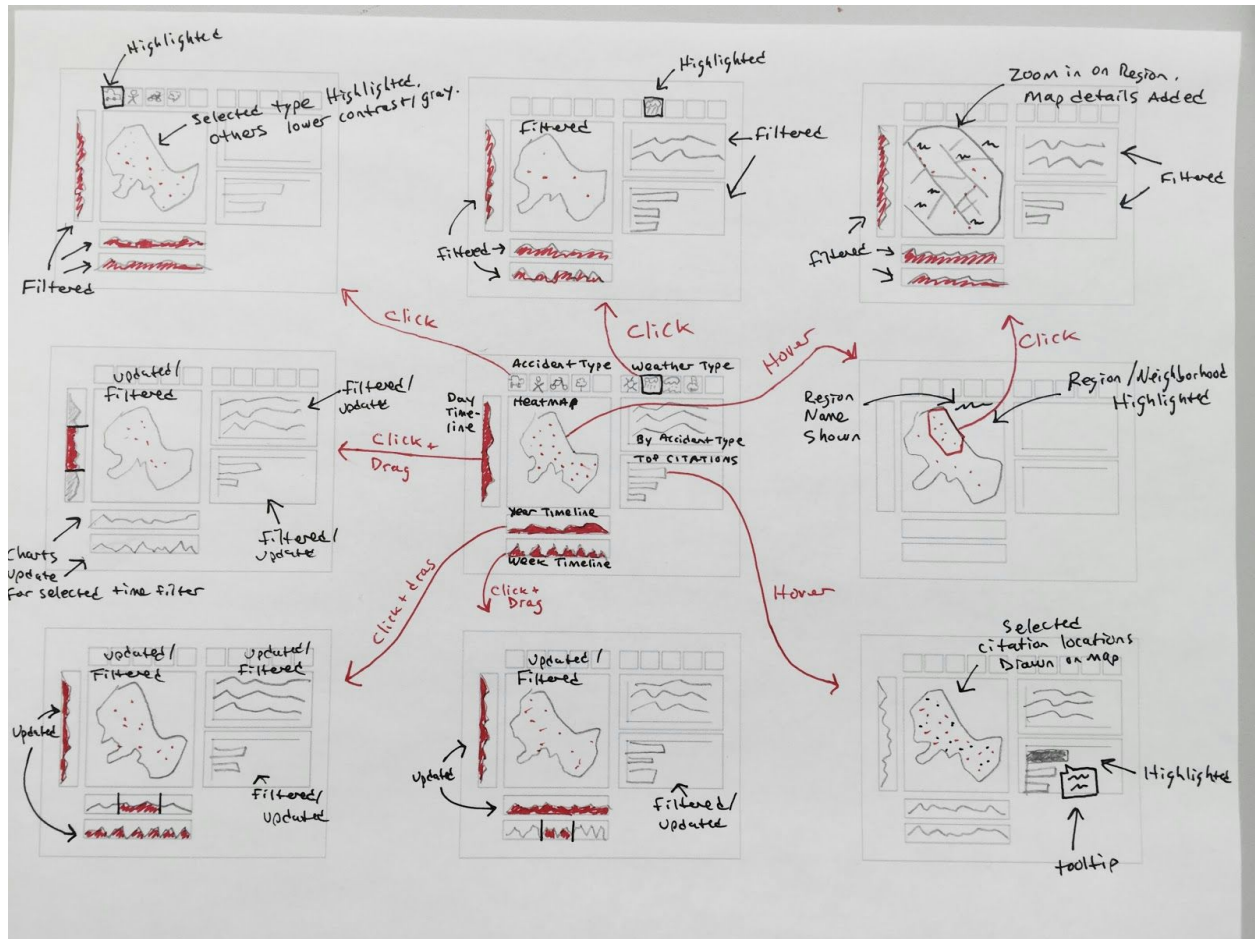 Highlighted
Selected type Highlighted.
others lower contrast/gray.
Filtered
Highlighted
Filtered
Filtered
Filtered
Zoom in on Region.
Map details Added
Filtered
Filtered
Click
Click
Hover
Click
Updated/
Filtered
Filtered/
Update
Click +
Drag
Filtered/
Update
Charts
Update
for selected time filter
Accident Type
Weather Type
Day
Time-
line
HEATMAP
By Accident Type
TOP CITATIONS
Year Timeline
Week Timeline
Region
Name
Shown
Region/Neighborhood
Highlighted
Click + drag
Click +
Drag
Hover
Updated/
Filtered
Updated/
Filtered
Updated
Filtered/
Updated
Updated/
Filtered
Updated
Filtered/
Updated
Selected
citation locations
Drawn on map
Highlighted
tooltip